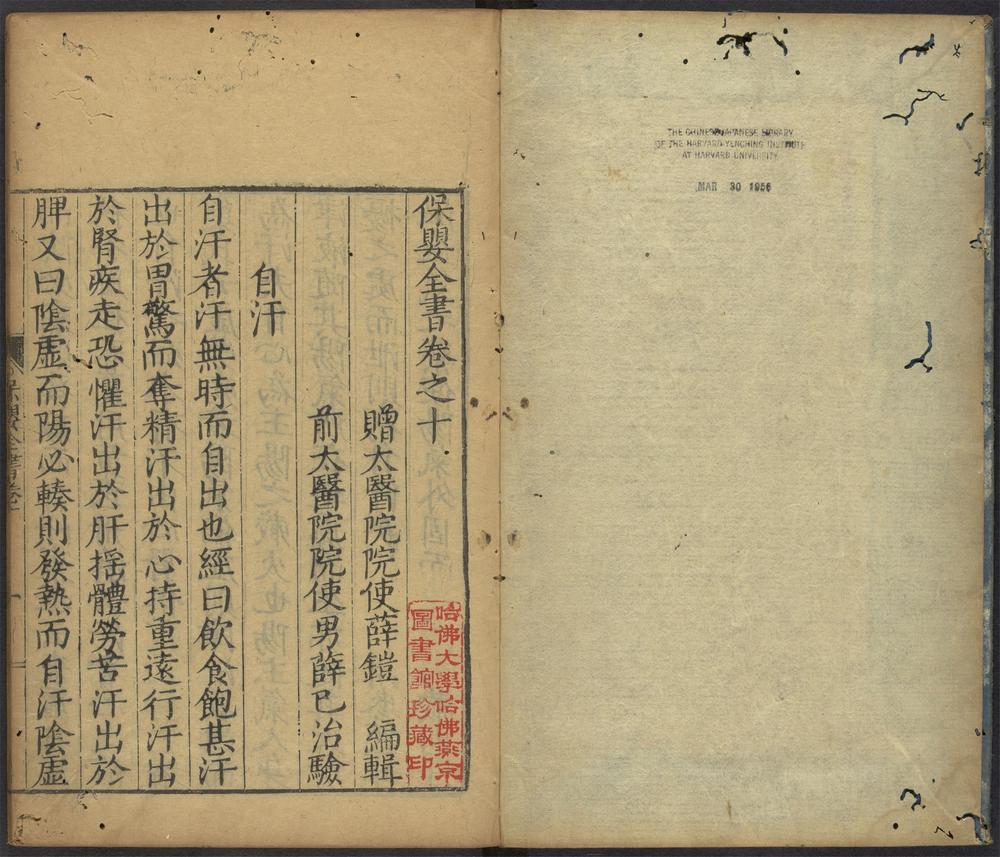 THE CHINESE-JAPANESE LIBRARY
OF THE HARVARD-YENCHING INSTITUTE
AT HARVARD UNIVERSITY
MAR 30 1956
保嬰全書卷之十
贈太醫院院使薛鎧 編輯
前太醫院院使男薛已治驗
自汗
自汗者汗無時而自出也經曰飲食飽甚汗
出於胃驚而奪精汗出於心持重遠行汗出
於腎疾走恐懼汗出於肝揺體勞苦汗出於
脾又曰陰虛而陽必輳則發熱而自汗陰虛
哈佛大學哈佛燕京
圖書館珍藏印